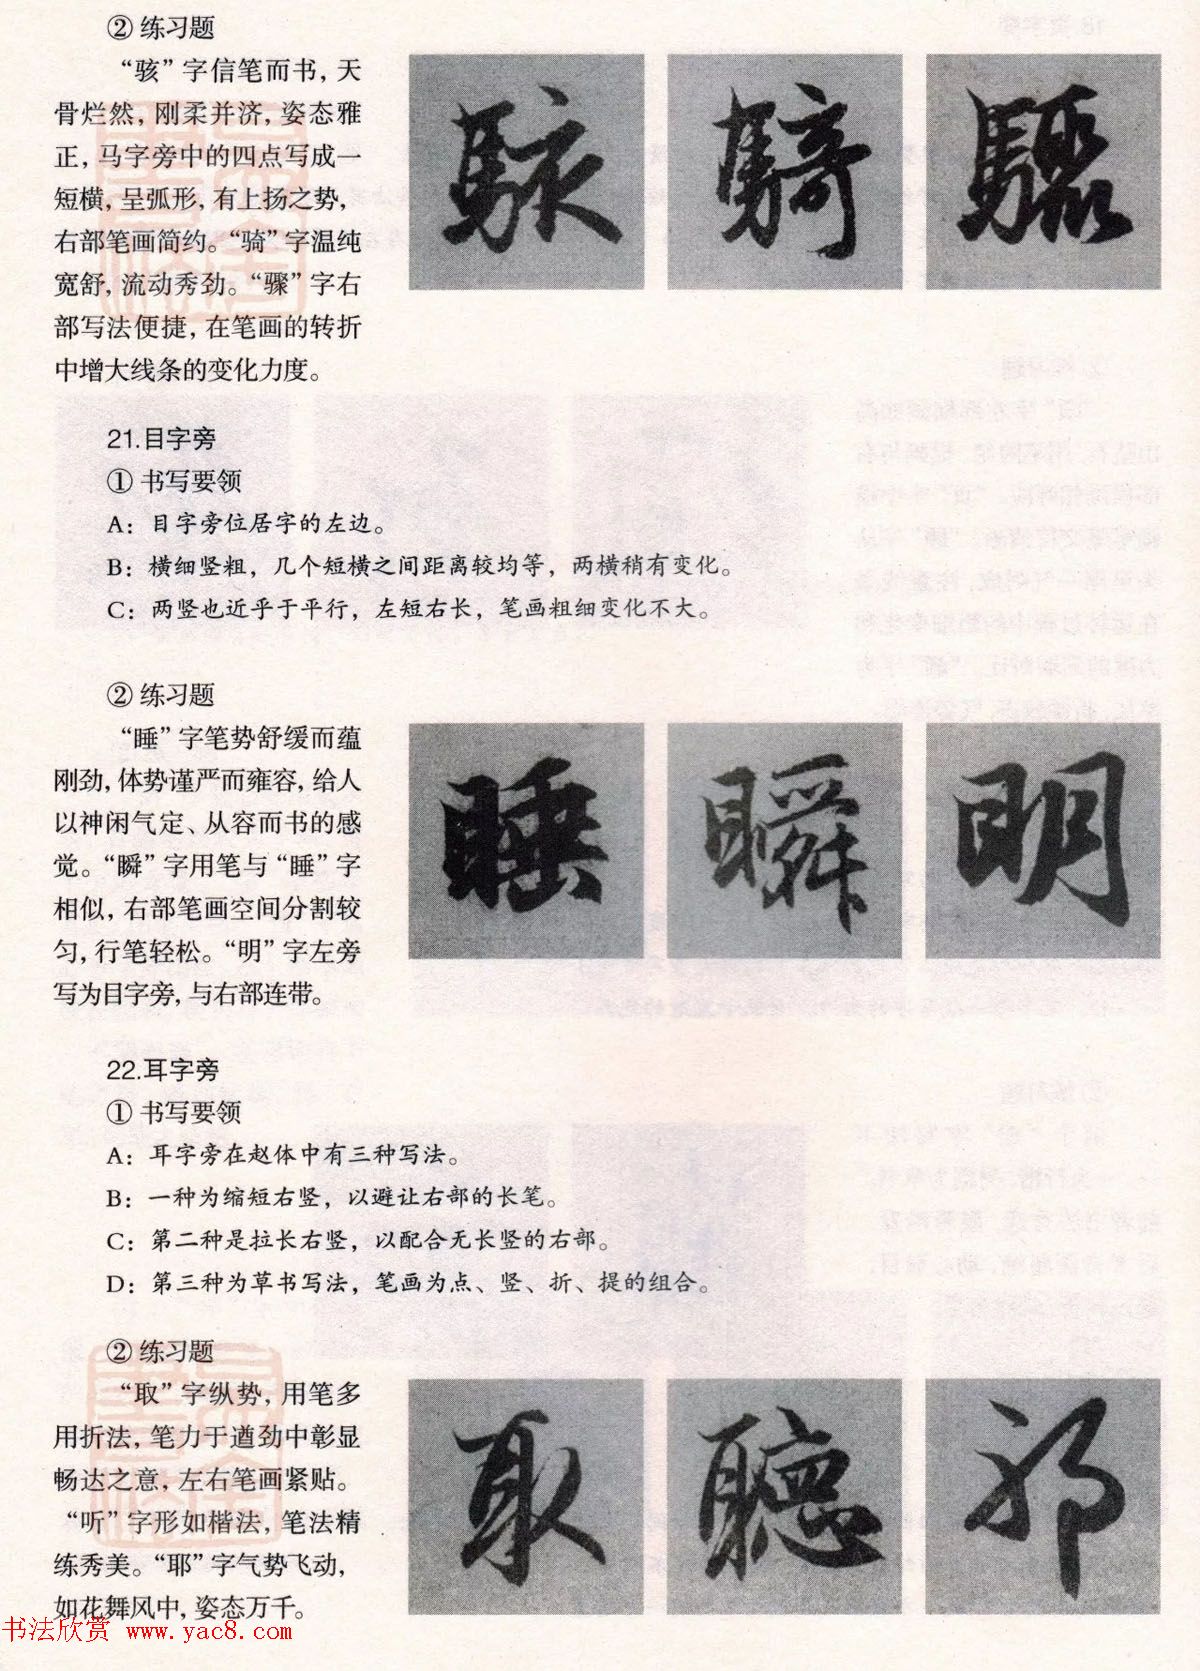 ② 练习题
“骇”字信笔而书，天
骨烂然，刚柔并济，姿态雅
正，马字旁中的四点写成一
短横，呈弧形，有上扬之势，
右部笔画简约。“骑”字温纯
宽舒，流动秀劲。“骤”字右
部写法便捷，在笔画的转折
中增大线条的变化力度。
駭 騎 驟
21.目字旁
① 书写要领
A：目字旁位居字的左边。
B：横细竖粗，几个短横之间距离较均等，两横稍有变化。
C：两竖也近乎于平行，左短右长，笔画粗细变化不大。
② 练习题
“睡”字笔势舒缓而蕴
刚劲，体势谨严而雍容，给人
以神闲气定、从容而书的感
觉。“瞬”字用笔与“睡”字
相似，右部笔画空间分割较
匀，行笔轻松。“明”字左旁
写为目字旁，与右部连带。
睡 瞬 明
22.耳字旁
① 书写要领
A：耳字旁在赵体中有三种写法。
B：一种为缩短右竖，以避让右部的长笔。
C：第二种是拉长右竖，以配合无长竖的右部。
D：第三种为草书写法，笔画为点、竖、折、提的组合。
② 练习题
“取”字纵势，用笔多
用折法，笔力于遒劲中彰显
畅达之意，左右笔画紧贴。
“听”字形如楷法，笔法精
练秀美。“耶”字气势飞动，
如花舞风中，姿态万千。
取 聽 耶
书法欣赏 www.yac8.com